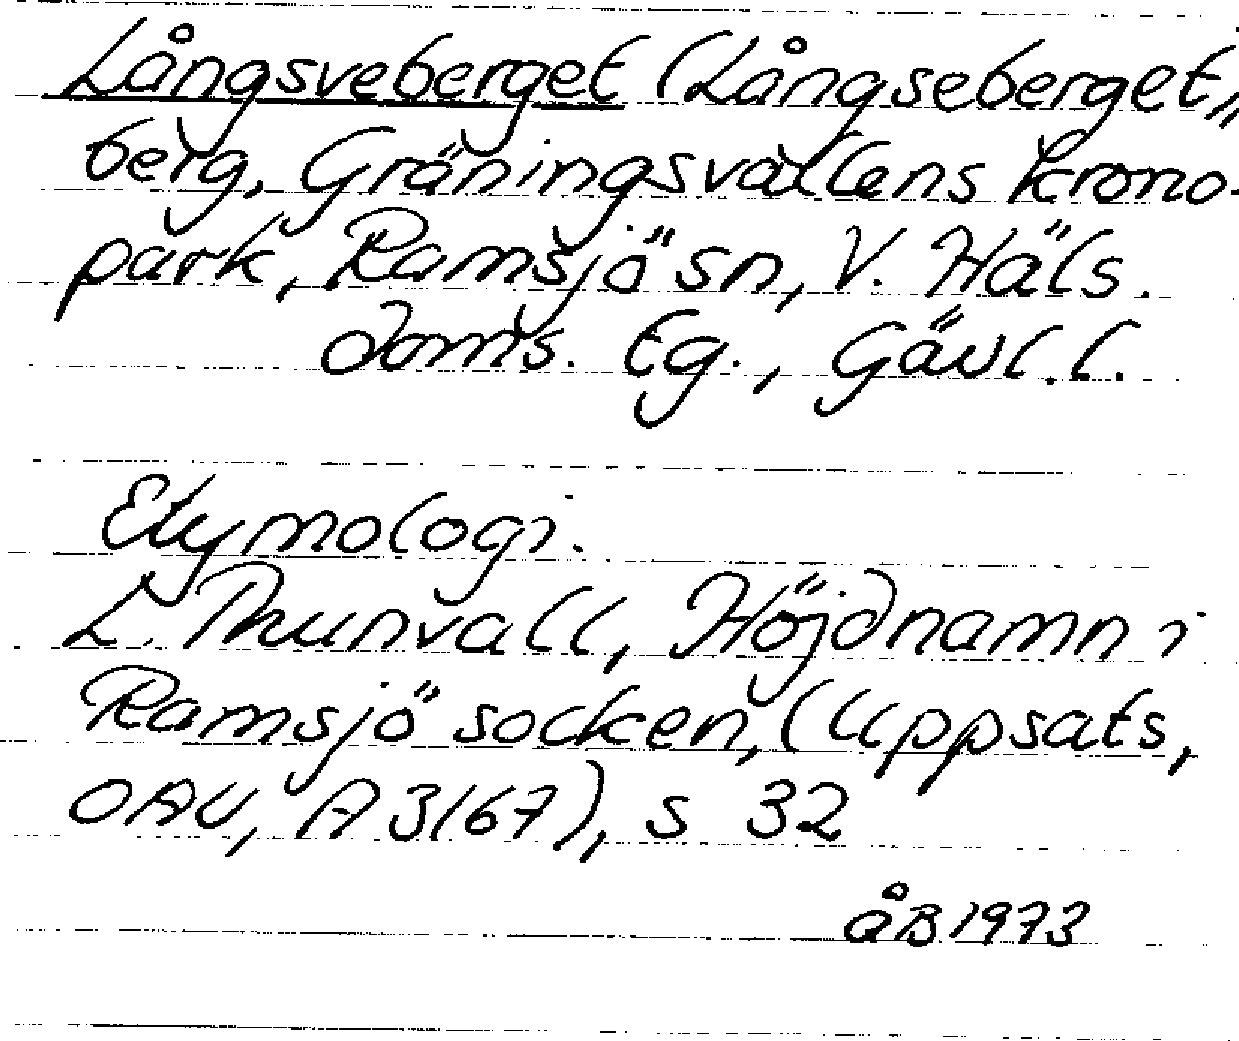 Långsveberget (Långseberget,,
berg, Gräningsvallens krono-
park, Ramsjö sn, V. Häls.
doms. Eg., Gävl. l.
Etymologi.
L. Thunvall, Höjdnamn i
Ramsjö socken, (Uppsats,
OAU, A 3167), s 32
åB 1973